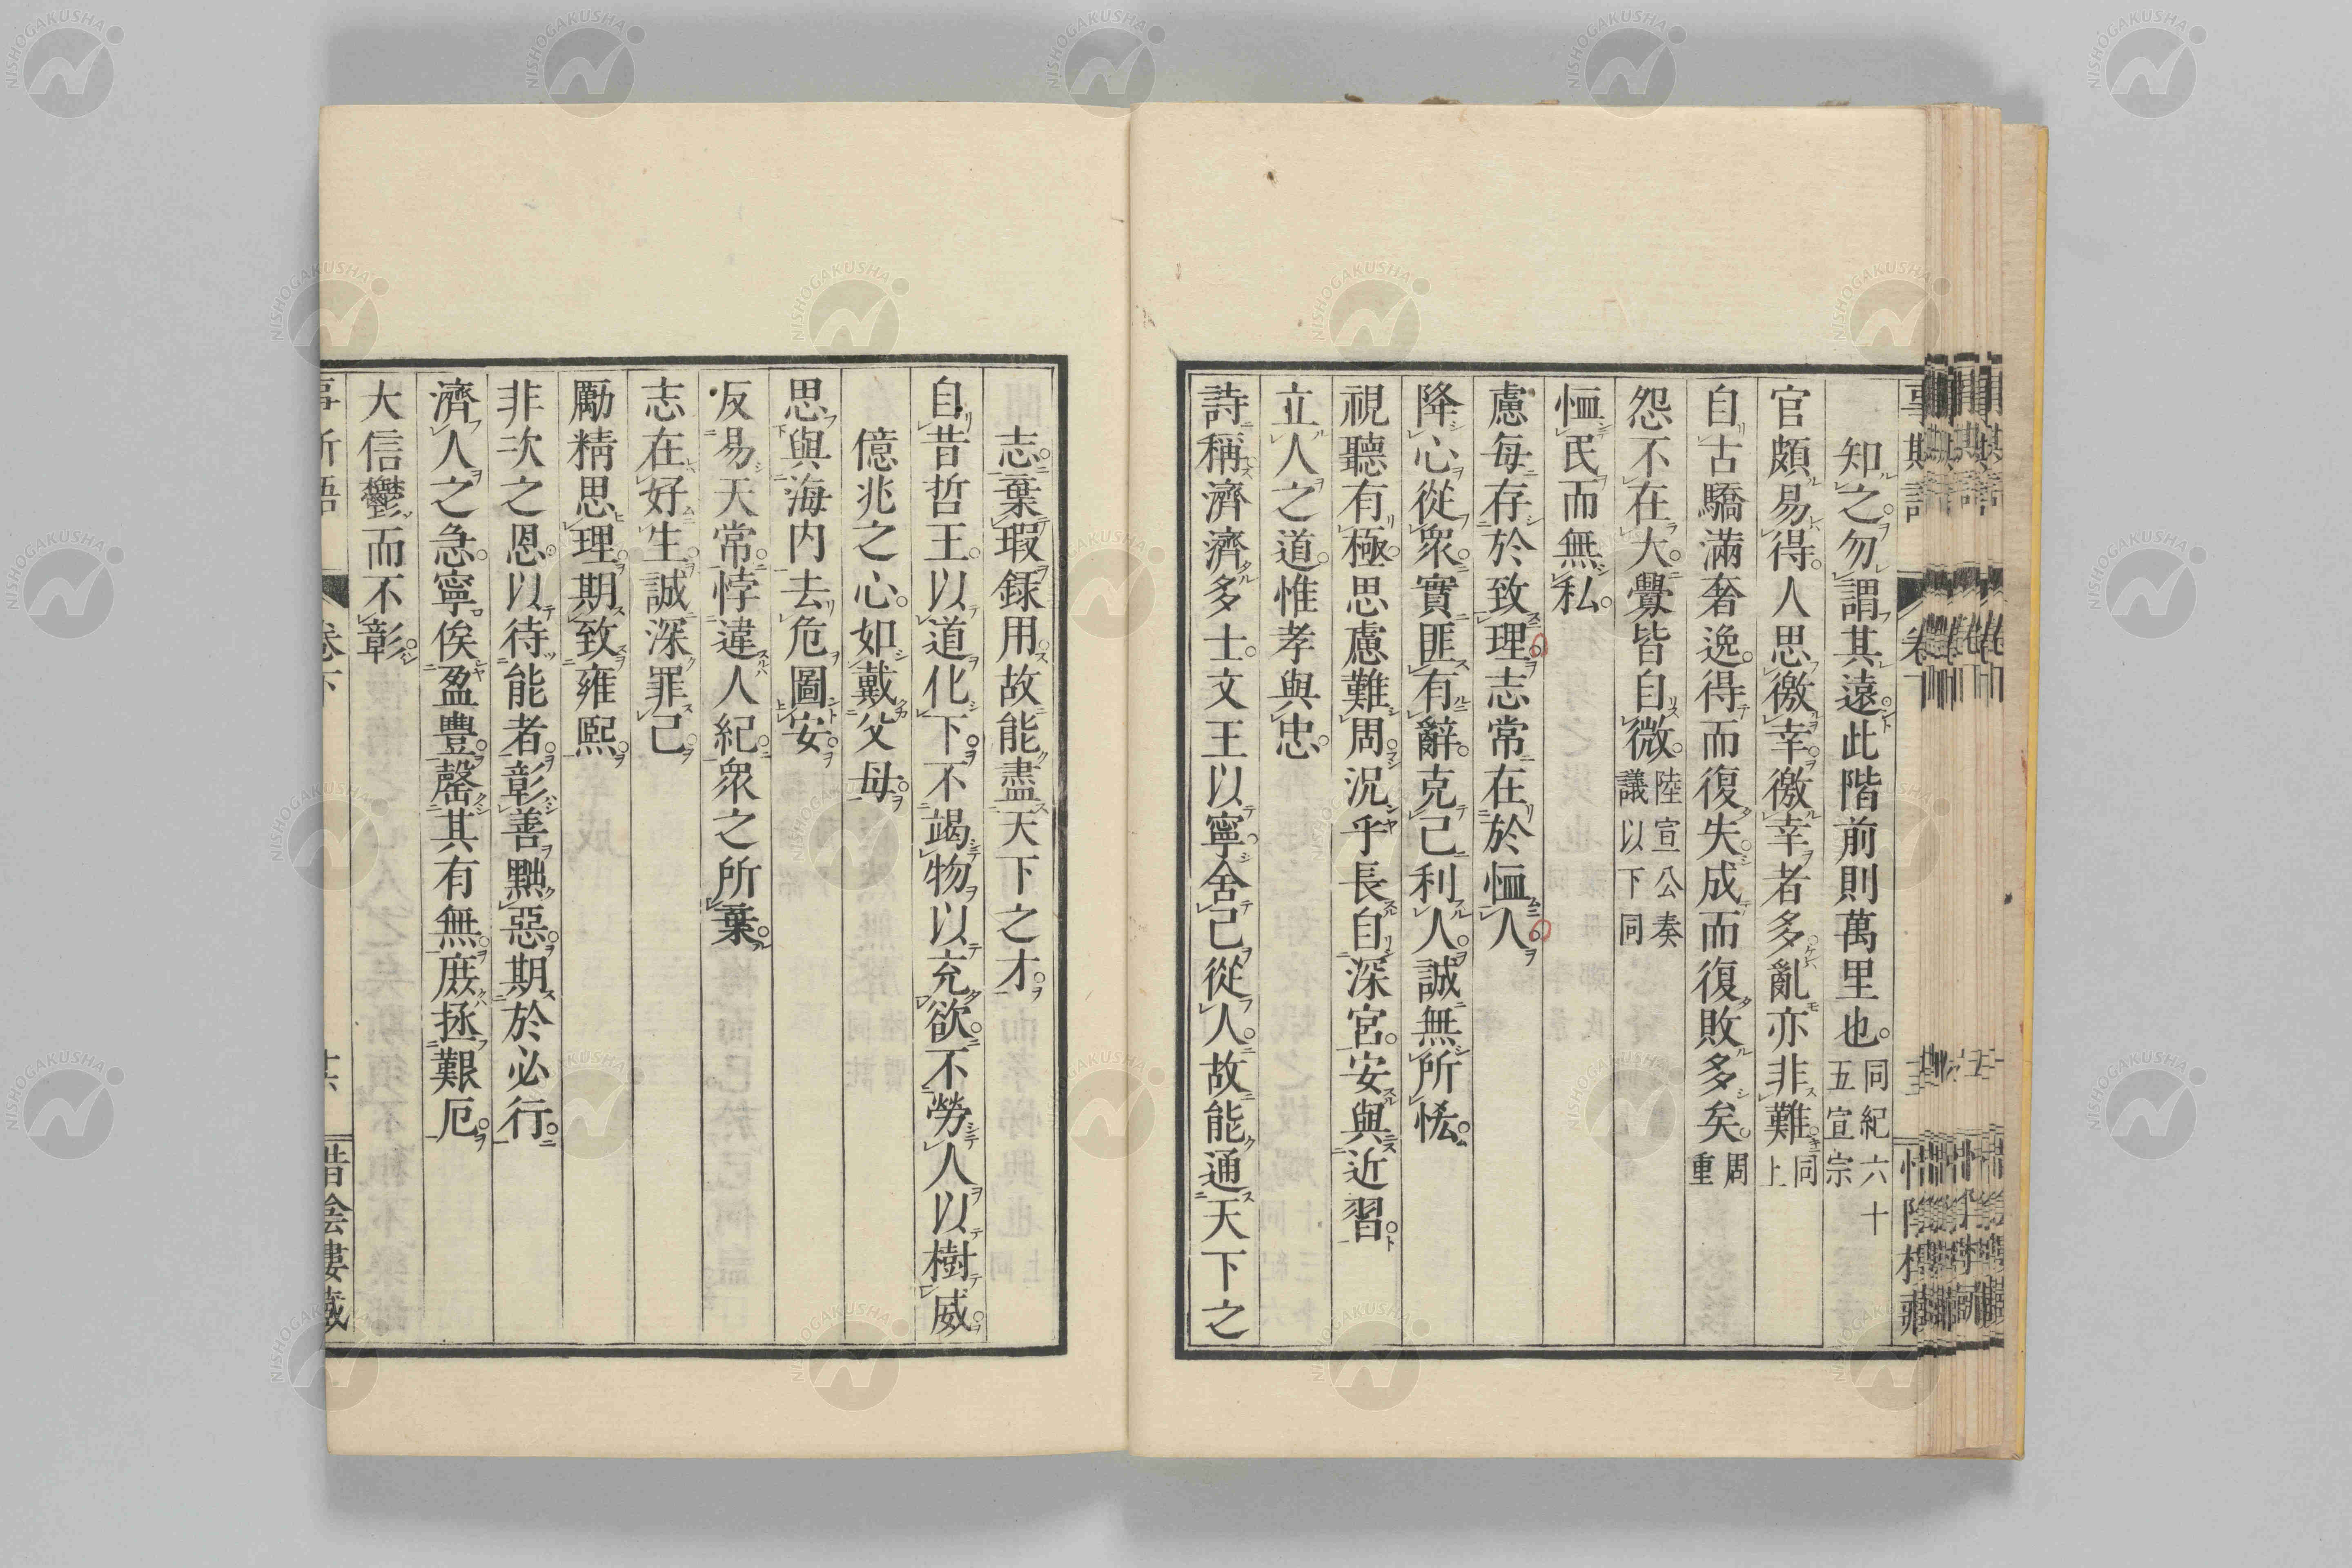 知之勿謂其遠此階前則萬里也。同紀六十五宣宗
官頗易得。人思徼幸徼幸者多亂亦非難同上
自古驕滿奢逸。得而復失成而復敗多矣。周重
怨不在大覺皆自微。陸宣公奏議以下同
恤民而無私。
慮每存於致理志常在於恤人
降心從衆實匪有辭。克己利人誠無所恡
視聽有極思慮難周況乎長自深宮。安與近習
立人之道。惟孝與忠。
詩稱濟濟多士。文王以寧舍己從人。故能通天下之
志。棄瑕錄用故能盡天下之才。
自昔哲王。以道化下不竭物以充欲。不勞人以樹威
億兆之心。如戴父母
思與海内去危圖安
反易天常悖違人紀衆之所棄
志在好生誠深罪己
勵精思理期致雍熙
非次之恩以待能者彰善黜惡期於必行
濟人之急。寧俟盈豐罄其有無庶拯艱厄
大信鬱而不彰
卷下
惜陰樓藏
NISHOGAKUSHA